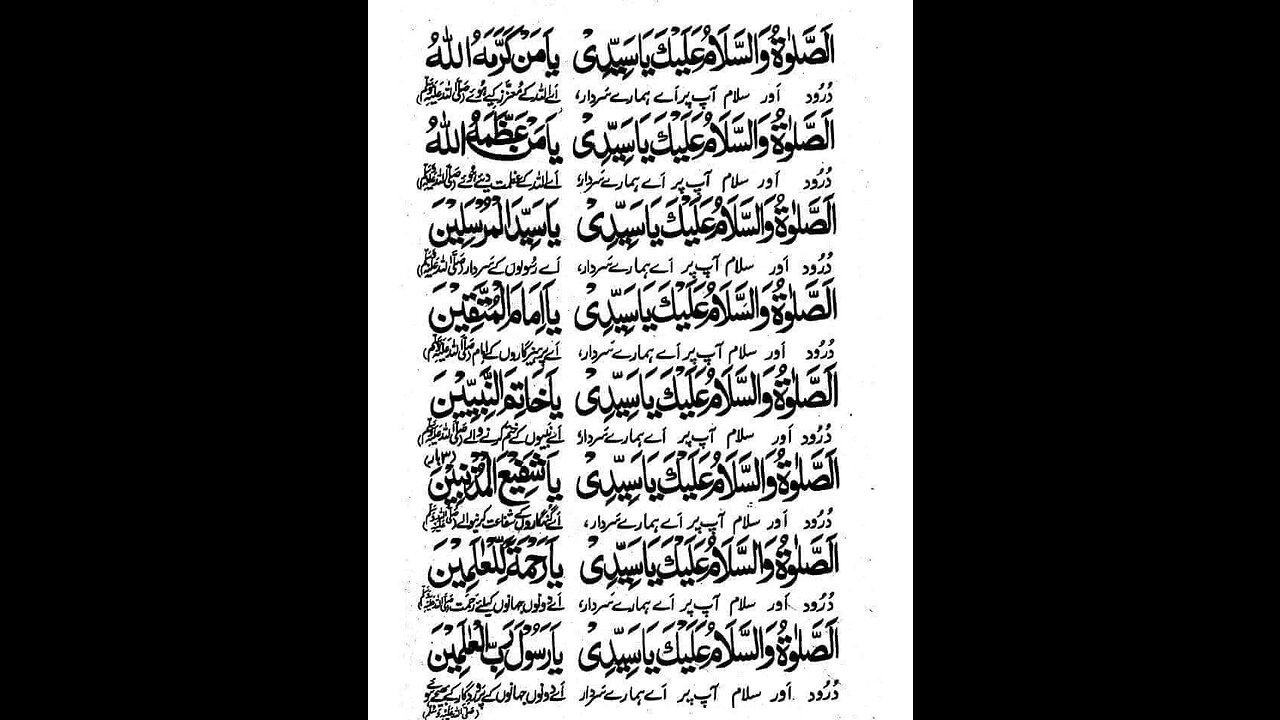 اَلصَّلٰوةُ وَالسَّلَامُ عَلَيْكَ يَا سَيِّدِىْ يَا مَنْ كَرَّمَهُ اللّٰهُ
دُرُود اَور سلام آپ پر اَے ہمارے سَردار، اَے اللہ کے مُعزّز کیے ہُوئے (صَلَّی اللہُ عَلَیْہِ وَسَلَّم)
اَلصَّلٰوةُ وَالسَّلَامُ عَلَيْكَ يَا سَيِّدِىْ يَا مَنْ عَظَّمَهُ اللّٰهُ
دُرُود اَور سلام آپ پر اَے ہمارے سَردار، اَے اللہ کے عظمت دیئے ہُوئے (صَلَّی اللہُ عَلَیْہِ وَسَلَّم)
اَلصَّلٰوةُ وَالسَّلَامُ عَلَيْكَ يَا سَيِّدِىْ يَا سَيِّدَ الْمُرْسَلِيْنَ
دُرُود اَور سلام آپ پر اَے ہمارے سَردار، اَے رسُولوں کے سَردار (صَلَّی اللہُ عَلَیْہِ وَسَلَّم)
اَلصَّلٰوةُ وَالسَّلَامُ عَلَيْكَ يَا سَيِّدِىْ يَا اِمَامَ الْمُتَّقِيْنَ
دُرُود اَور سلام آپ پر اَے ہمارے سَردار، اَے پرہیزگاروں کے اِمام (صَلَّی اللہُ عَلَیْہِ وَسَلَّم)
اَلصَّلٰوةُ وَالسَّلَامُ عَلَيْكَ يَا سَيِّدِىْ يَا خَاتِمَ النَّبِيِّيْنَ
دُرُود اَور سلام آپ پر اَے ہمارے سَردار، اَے نبیوں کے ختم کرنے والے (صَلَّی اللہُ عَلَیْہِ وَسَلَّم)
(۳ بار)
اَلصَّلٰوةُ وَالسَّلَامُ عَلَيْكَ يَا سَيِّدِىْ يَا شَفِيْعَ الْمُذْنِبِيْنَ
دُرُود اَور سلام آپ پر اَے ہمارے سَردار، اَے گنہگاروں کے شفاعت کرنیوالے (صَلَّی اللہُ عَلَیْہِ وَسَلَّم)
اَلصَّلٰوةُ وَالسَّلَامُ عَلَيْكَ يَا سَيِّدِىْ يَا رَحْمَةً لِّلْعٰلَمِيْنَ
دُرُود اَور سلام آپ پر اَے ہمارے سَردار، اَے دونوں جہانوں کیلئے رَحمت (صَلَّی اللہُ عَلَیْہِ وَسَلَّم)
اَلصَّلٰوةُ وَالسَّلَامُ عَلَيْكَ يَا سَيِّدِىْ يَا رَسُوْلَ رَبِّ الْعٰلَمِيْنَ
دُرُود اَور سلام آپ پر اَے ہمارے سَردار اَے دونوں جہانوں کے پروردگار کے بھیجے ہوئے
(صَلَّی اللہُ عَلَیْہِ وَسَلَّم)